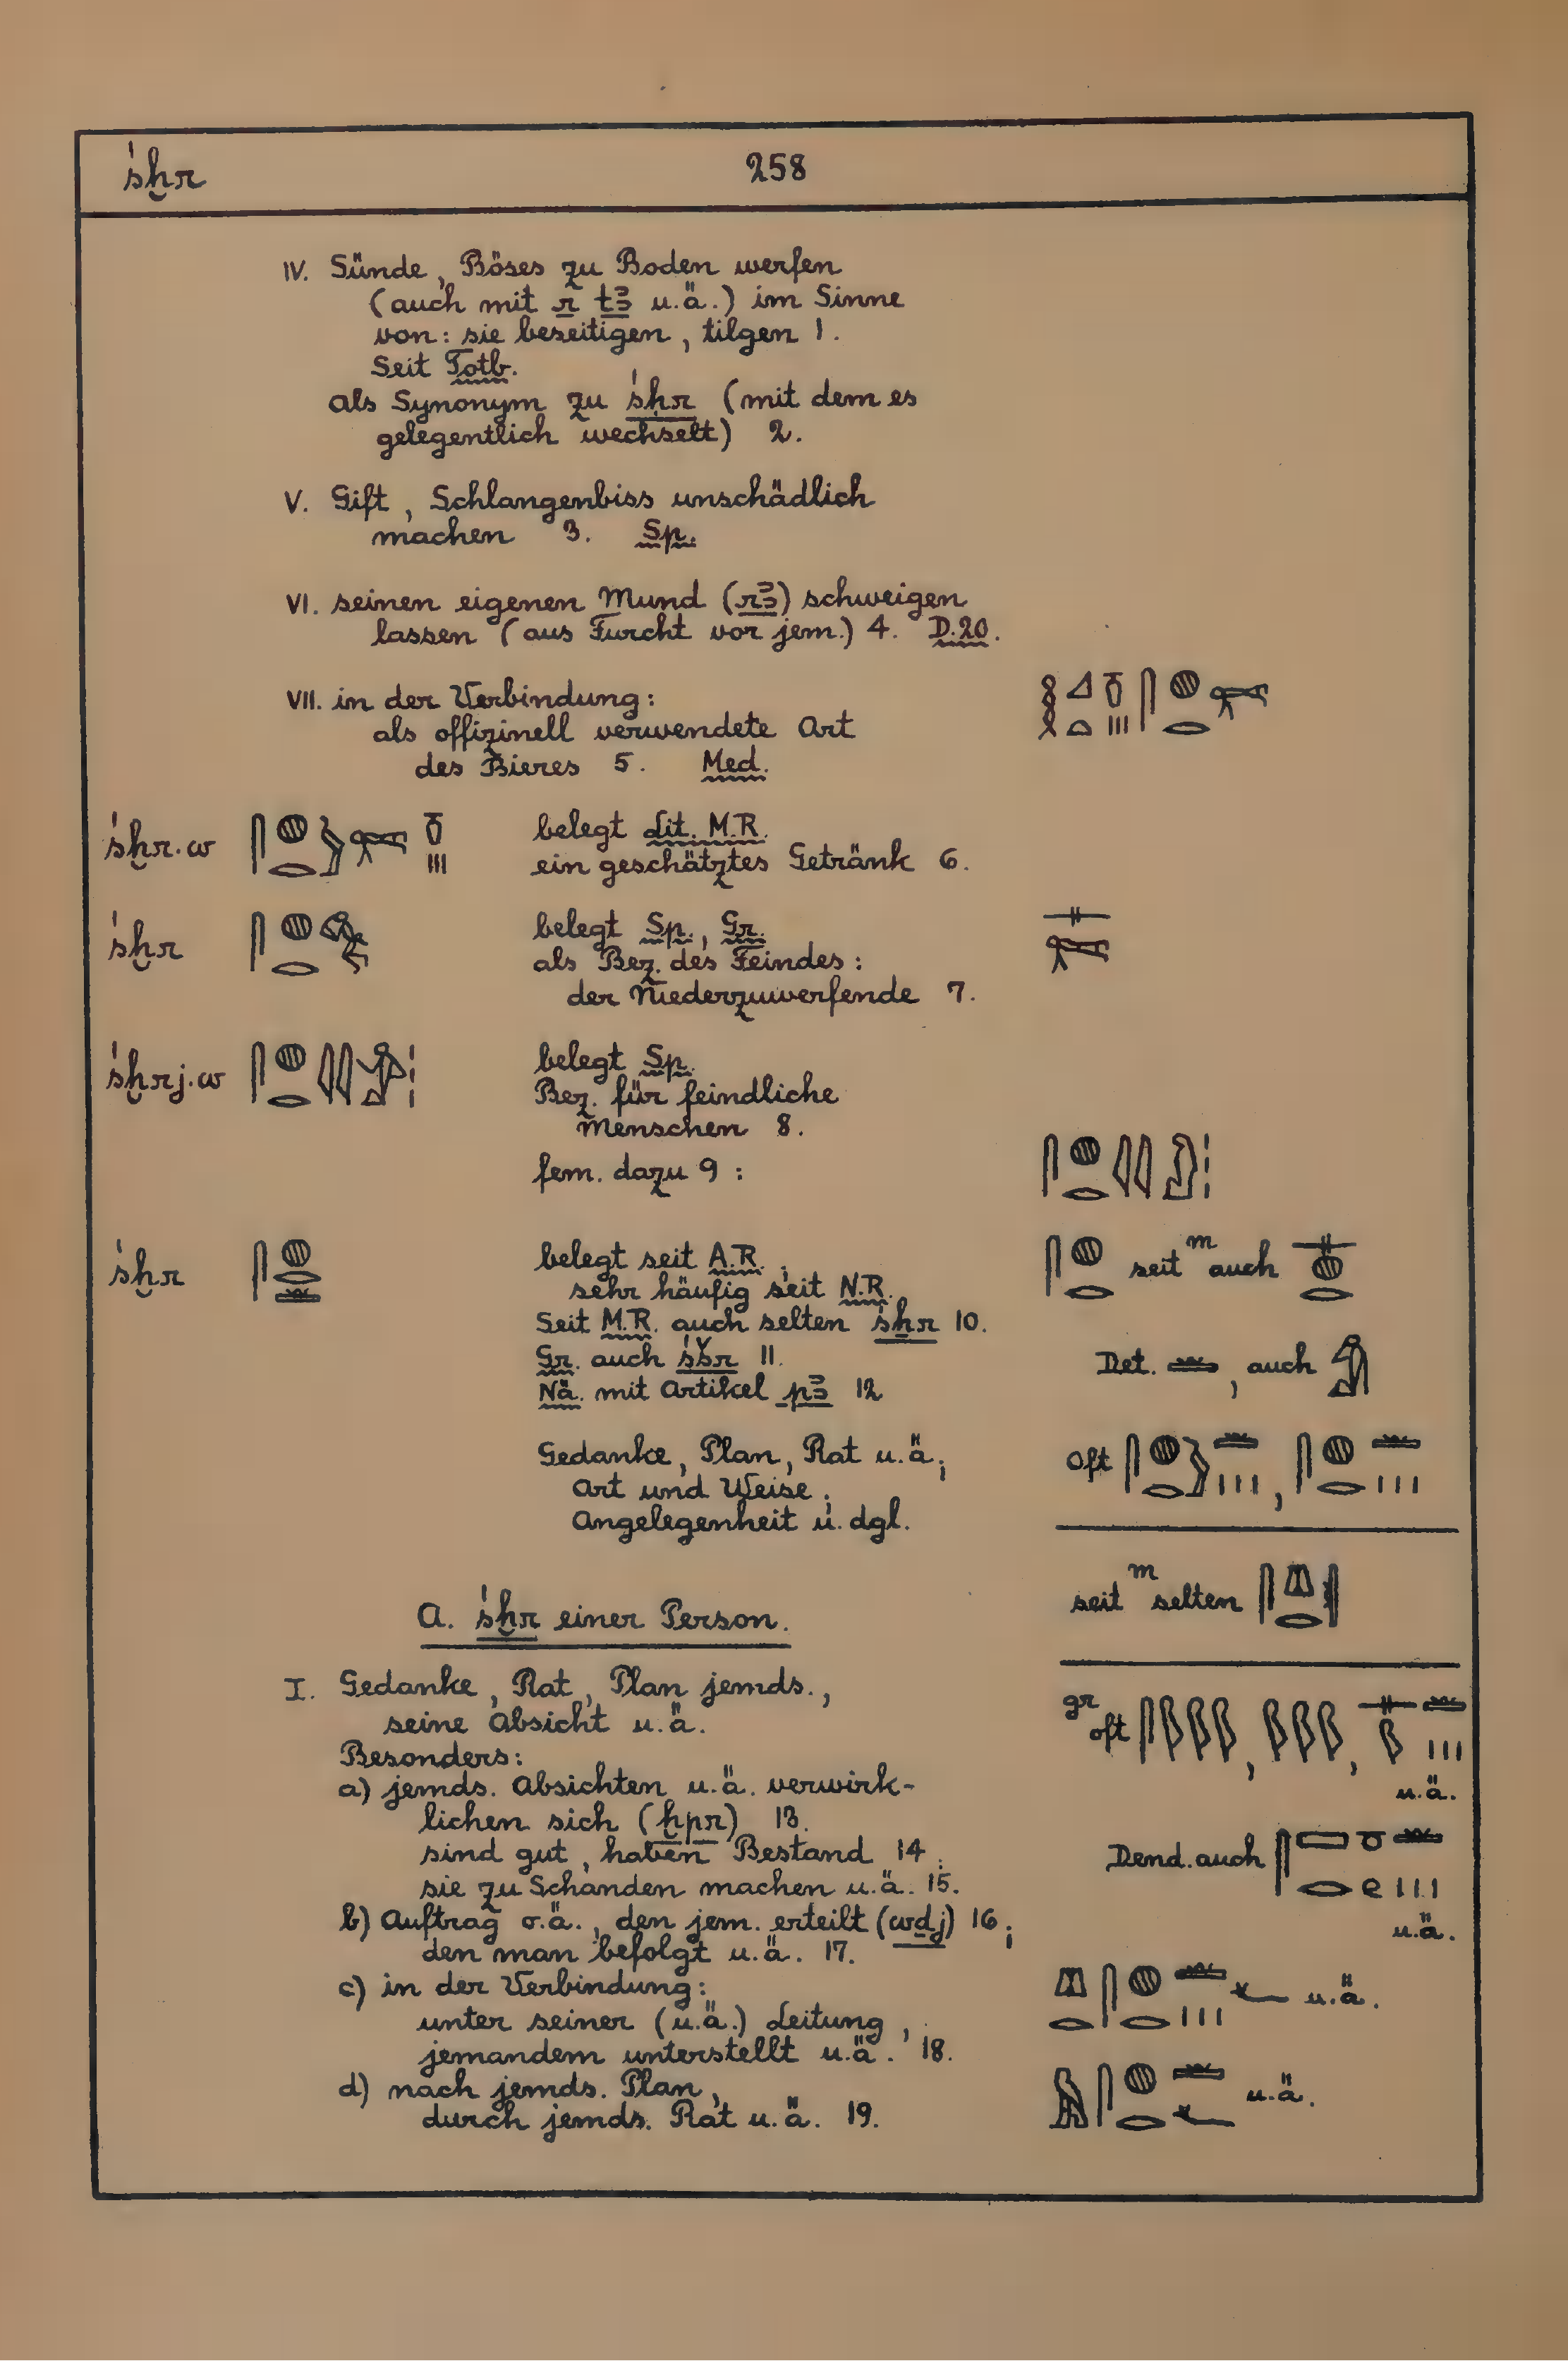 śḫr 258
IV. Sünde, Böses zu Boden werfen
(auch mit r tꜣ u.ä.) im Sinne
von: sie beseitigen, tilgen 1.
Seit Totb.
als Synonym zu śḥr (mit dem es
gelegentlich wechselt) 2.
V. Gift, Schlangenbiss unschädlich
machen 3. Sp.
VI. seinen eigenen Mund (rꜣ) schweigen
lassen (aus Furcht vor jem.) 4. D.20.
VII. in der Verbindung:
als offizinell verwendete Art
des Bieres 5. Med.
śḫr.w belegt Lit. M.R.
ein geschätztes Getränk 6.
śḫr belegt Sp., Gr.
als Bez. des Feindes:
der Niederzuwerfende 7.
śḫrj.w belegt Sp.
Bez. für feindliche
Menschen 8.
fem. dazu 9 :
śḫr belegt seit A.R.;
sehr häufig seit N.R.
seit m auch
Seit M.R. auch selten śẖr 10.
Gr. auch śšr 11.
Det. , auch
Nä. mit Artikel pꜣ 12
Gedanke, Plan, Rat u.ä;
oft ,
Art und Weise;
Angelegenheit u. dgl.
seit m selten
A. śḫr einer Person.
I. Gedanke, Rat, Plan jemds.,
seine Absicht u.ä.
gr oft , ,
u.ä.
Besonders:
a) jemds. Absichten u.ä. verwirk-
lichen sich (ḫpr) 13.
sind gut, haben Bestand 14;
Dend. auch
u.ä.
sie zu Schanden machen u.ä. 15.
b) Auftrag o.ä., den jem. erteilt (wḏj) 16;
den man befolgt u.ä. 17.
c) in der Verbindung:
u.ä.
unter seiner (u.ä.) Leitung,
jemandem unterstellt u.ä. 18.
d) nach jemds. Plan,
u.ä.
durch jemds. Rat u.ä. 19.